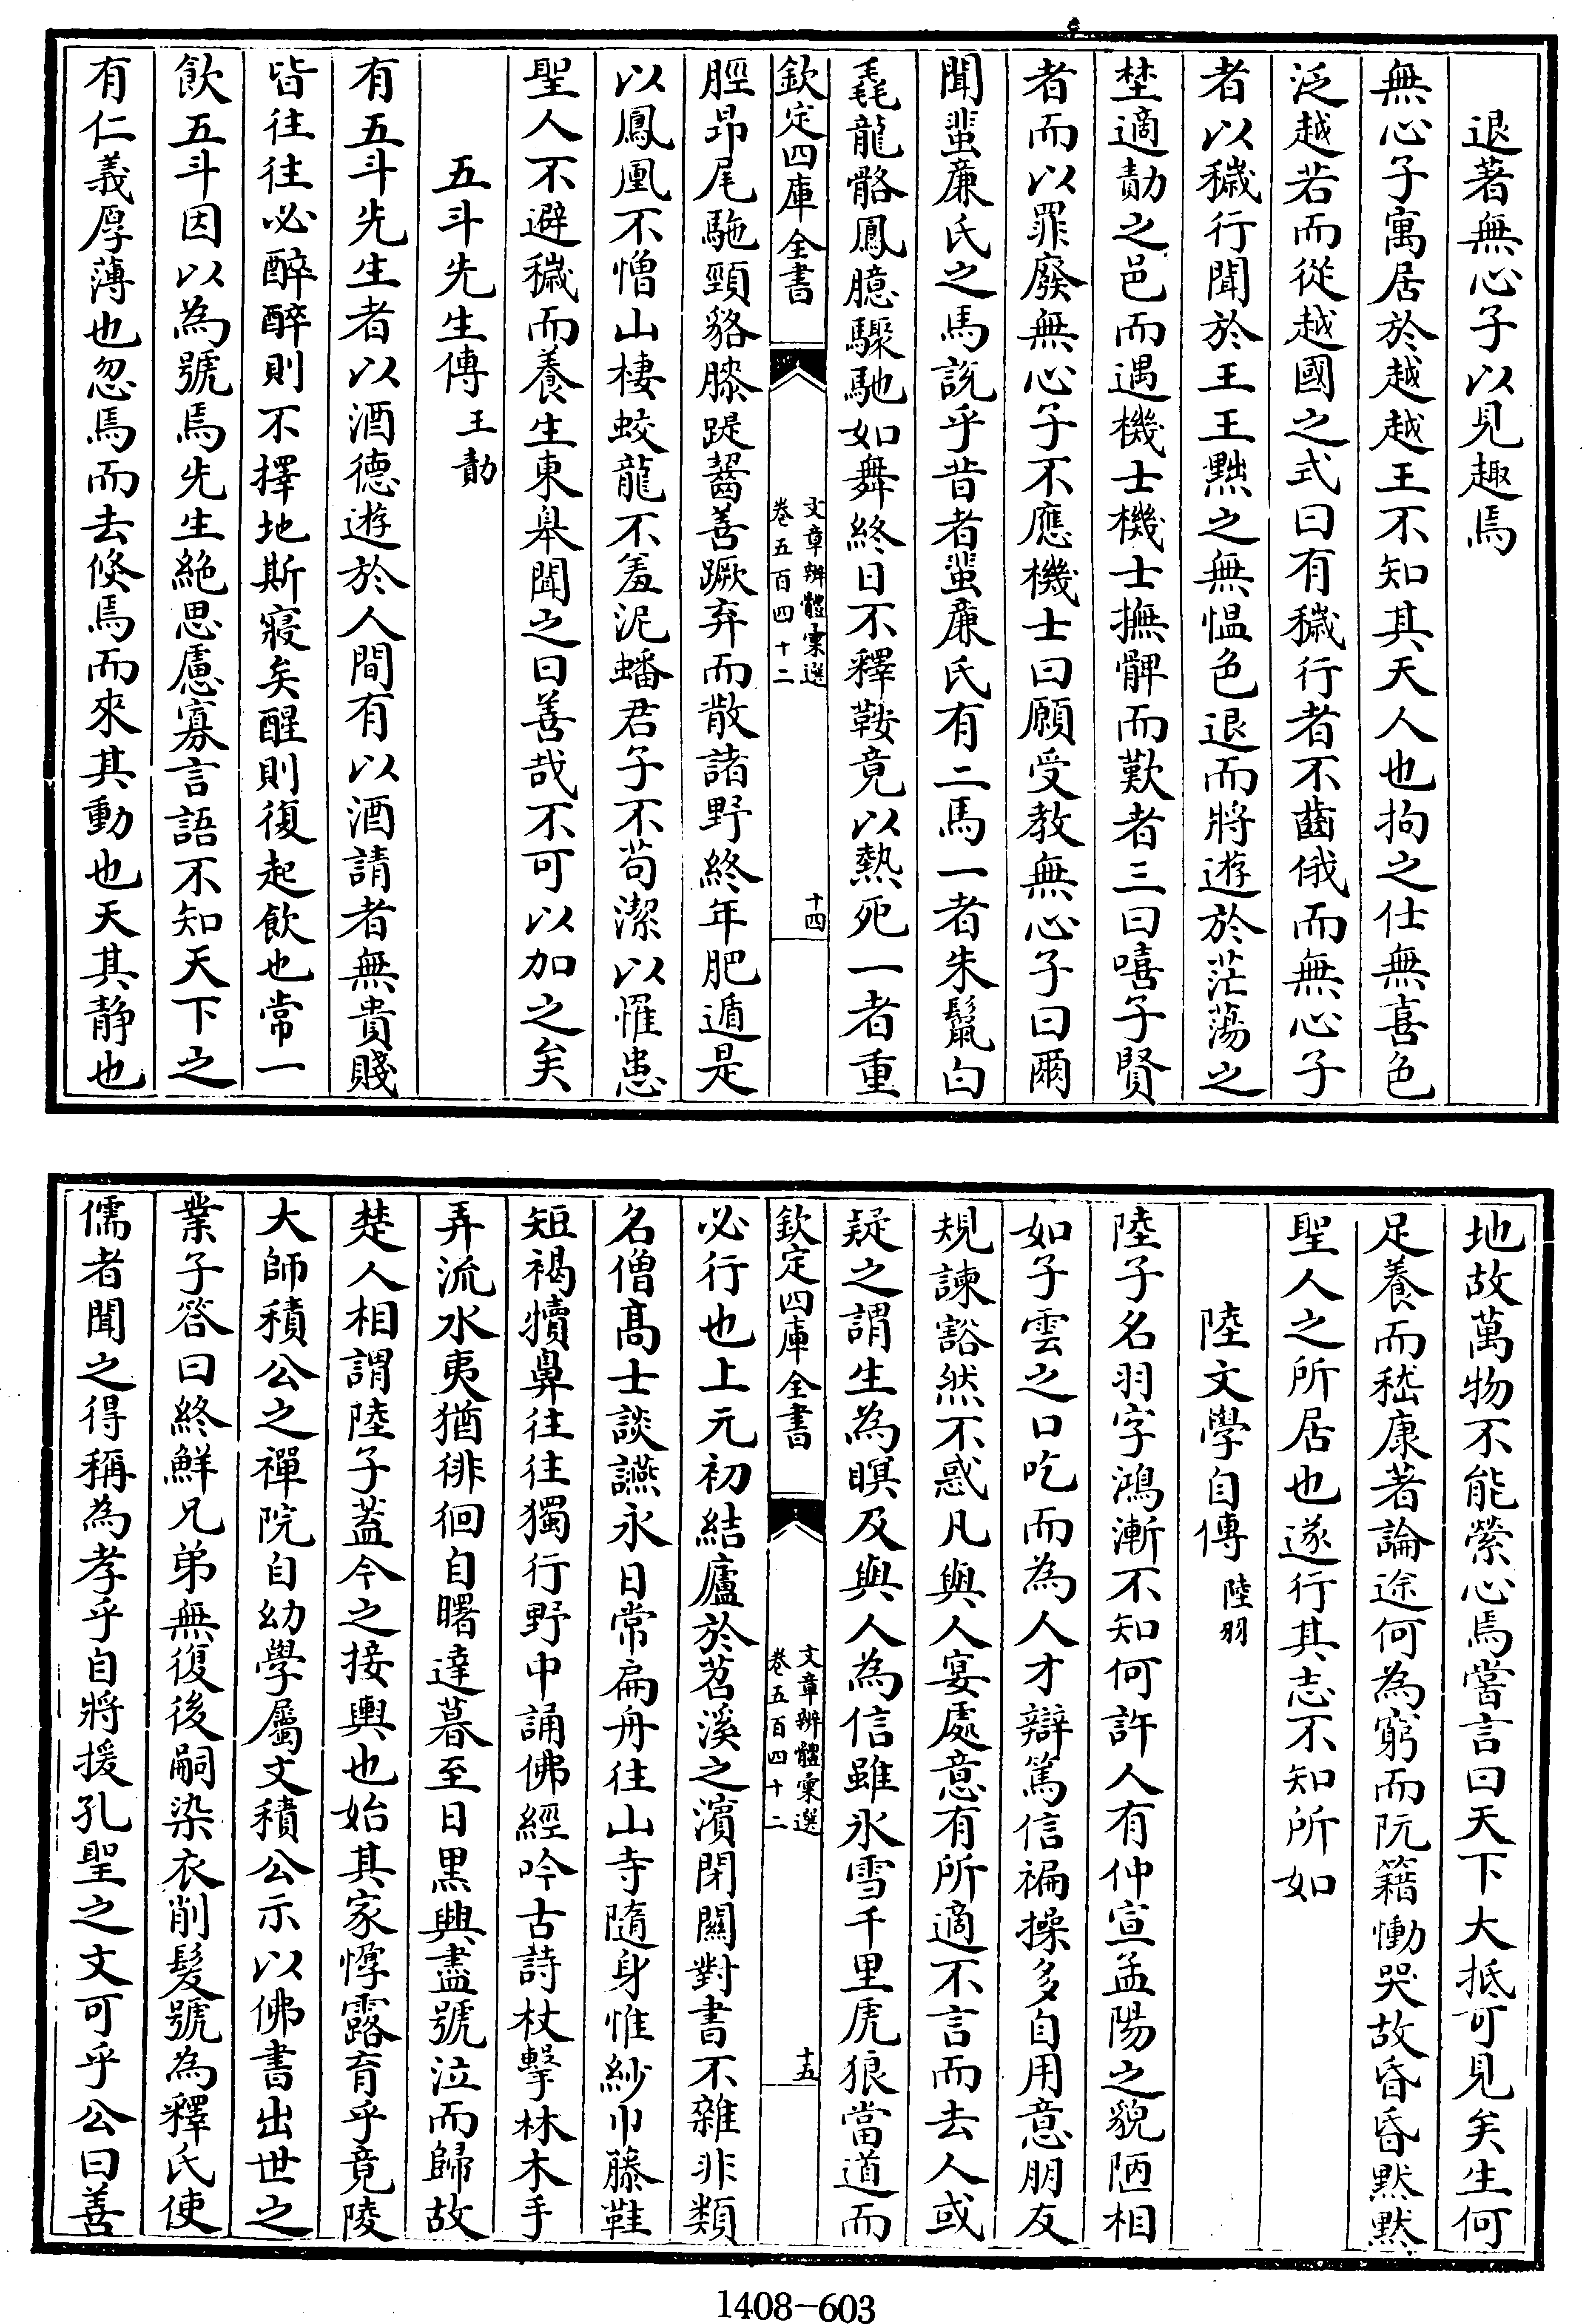 退著無心子以見趣焉
無心子寓居於越越王不知其天人也拘之仕無喜色
泛越若而從越國之式曰有穢行者不齒俄而無心子
者以穢行聞於王王黜之無愠色退而將遊於茫蕩之
埜適動之邑而遇機士機士撫髀而歎者三曰嘻子賢
者而以罪廢無心子不應機士曰願受教無心子曰爾
聞蜚廉氏之馬說乎昔者蜚廉氏有二馬一者朱鬛白
毳龍骼鳳臆驟馳如舞終日不釋鞍竟以熱死一者重
欽定四庫全書
文章辨體彙選
卷五百四十二
十四
脛昂尾駞頸貉膝踶齧善蹶弃而散諸野終年肥遁是
以鳳凰不憎山棲蛟龍不羞泥蟠君子不苟潔以罹患
聖人不避穢而養生東臯聞之曰善哉不可以加之矣
五斗先生傳 王勣
有五斗先生者以酒德遊於人間有以酒請者無貴賤
皆往往必醉醉則不擇地斯寢矣醒則復起飲也常一
飲五斗因以為號焉先生絶思慮寡言語不知天下之
有仁義厚薄也忽焉而去倐焉而來其動也天其静也
地故萬物不能縈心焉嘗言曰天下大抵可見矣生何
足養而嵇康著論途何為窮而阮籍慟哭故昏昏默默
聖人之所居也遂行其志不知所如
陸文學自傳 陸羽
陸子名羽字鴻漸不知何許人有仲宣孟陽之貌陋相
如子雲之口吃而為人才辯篤信褊操多自用意朋友
規諫豁然不惑凡與人宴處意有所適不言而去人或
疑之謂生為瞋及與人為信雖氷雪千里虎狼當道而
欽定四庫全書
文章辨體彙選
卷五百四十二
十五
必行也上元初結廬於苕溪之濱閉關對書不雜非類
名僧髙士談讌永日常扁舟往山寺隨身惟紗巾藤鞋
短褐犢鼻往往獨行野中誦佛經吟古詩杖擊林木手
弄流水夷猶徘徊自曙達暮至日黒興盡號泣而歸故
楚人相謂陸子葢今之接輿也始其家惸露育乎竟陵
大師積公之禪院自幼學屬文積公示以佛書出世之
業子答曰終鮮兄弟無復後嗣染衣削髮號為釋氏使
儒者聞之得稱為孝乎自將援孔聖之文可乎公曰善
1408-603